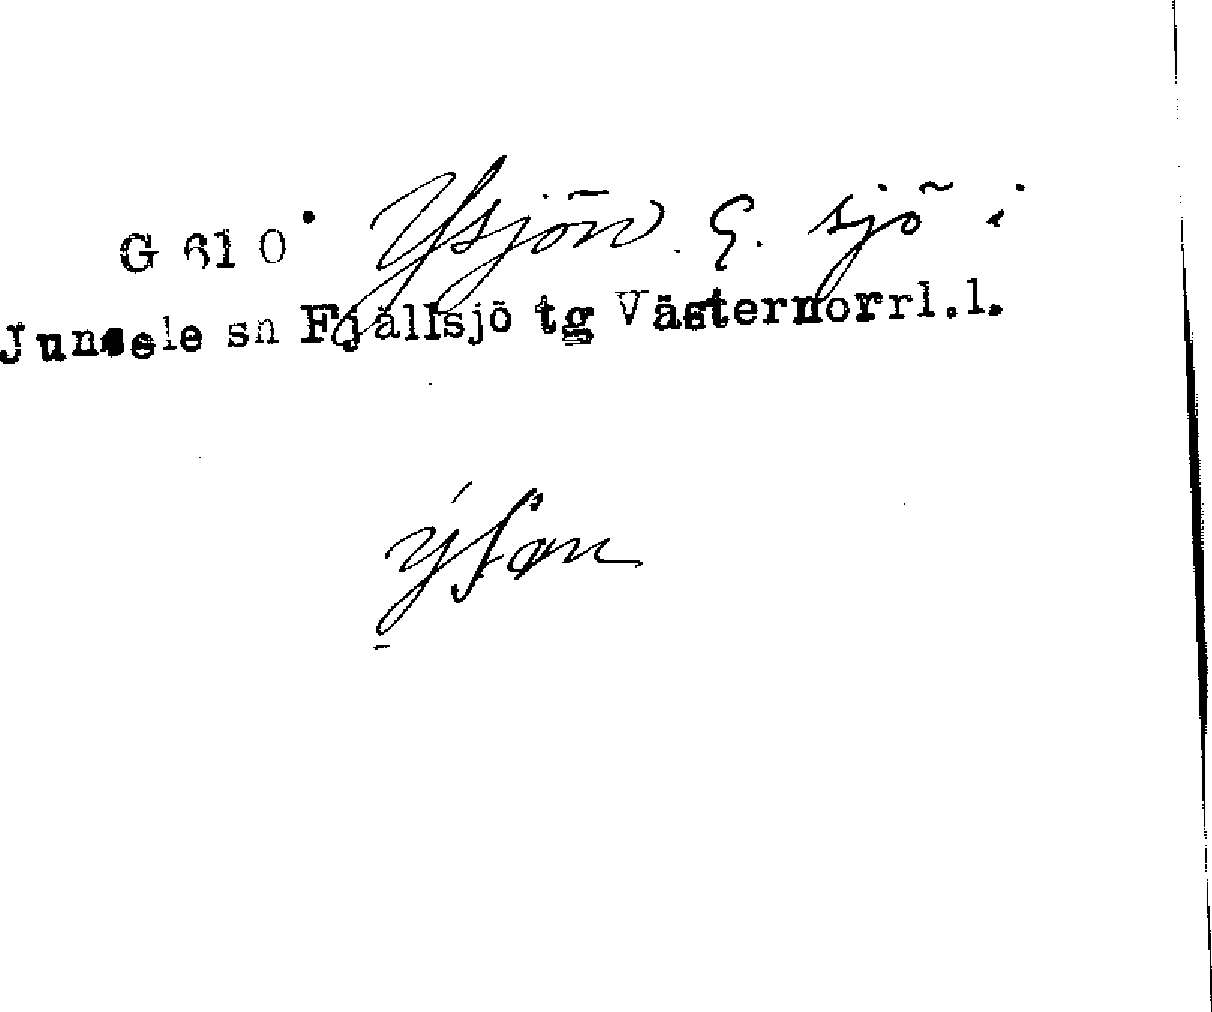 G 61 O Ysjön. G. sjö i
Junsele sn Fjällsjö tg Västernorrl.l.